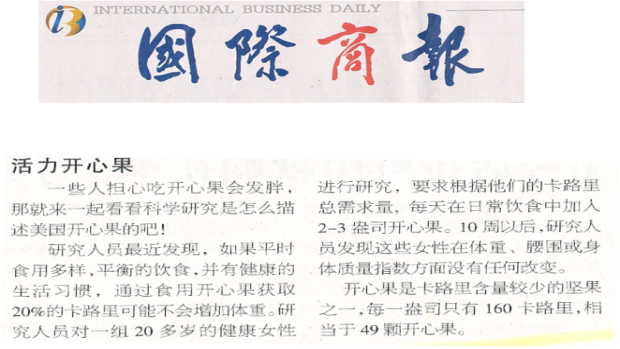 INTERNATIONAL BUSINESS DAILY
國際商報
活力开心果
一些人担心吃开心果会发胖，
那就来一起看看科学研究是怎么描
述美国开心果的吧！
研究人员最近发现，如果平时
食用多样，平衡的饮食，并有健康的
生活习惯，通过食用开心果获取
20%的卡路里可能不会增加体重。研
究人员对一组 20 多岁的健康女性
进行研究，要求根据他们的卡路里
总需求量，每天在日常饮食中加入
2-3 盎司开心果。10 周以后，研究人
员发现这些女性在体重、腰围或身
体质量指数方面没有任何改变。
开心果是卡路里含量较少的坚果
之一，每一盎司只有 160 卡路里，相
当于 49 颗开心果。